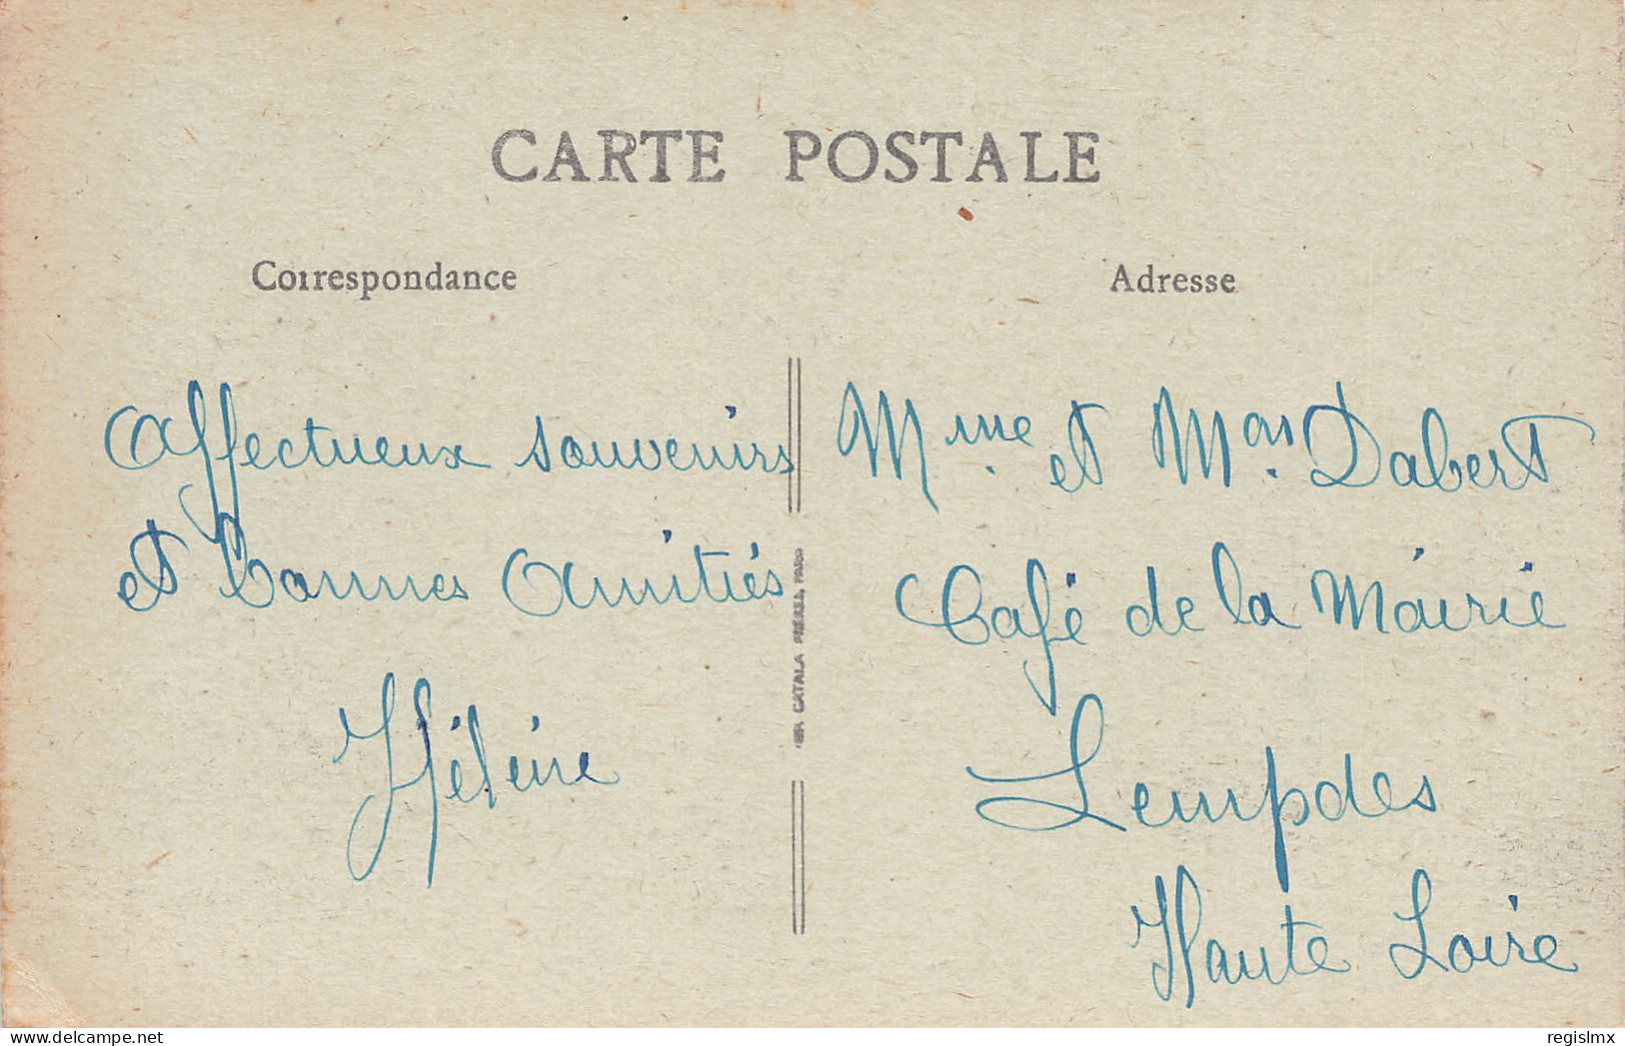 CARTE POSTALE
Correspondance
Affectueux souvenirs
et bonnes Amitiés
Hélène
CATALA FRÈRES, PARIS
Adresse
Mme et Mr Dabert
Café de la Mairie
Lempdes
Haute Loire
delcampe.net
regislmx